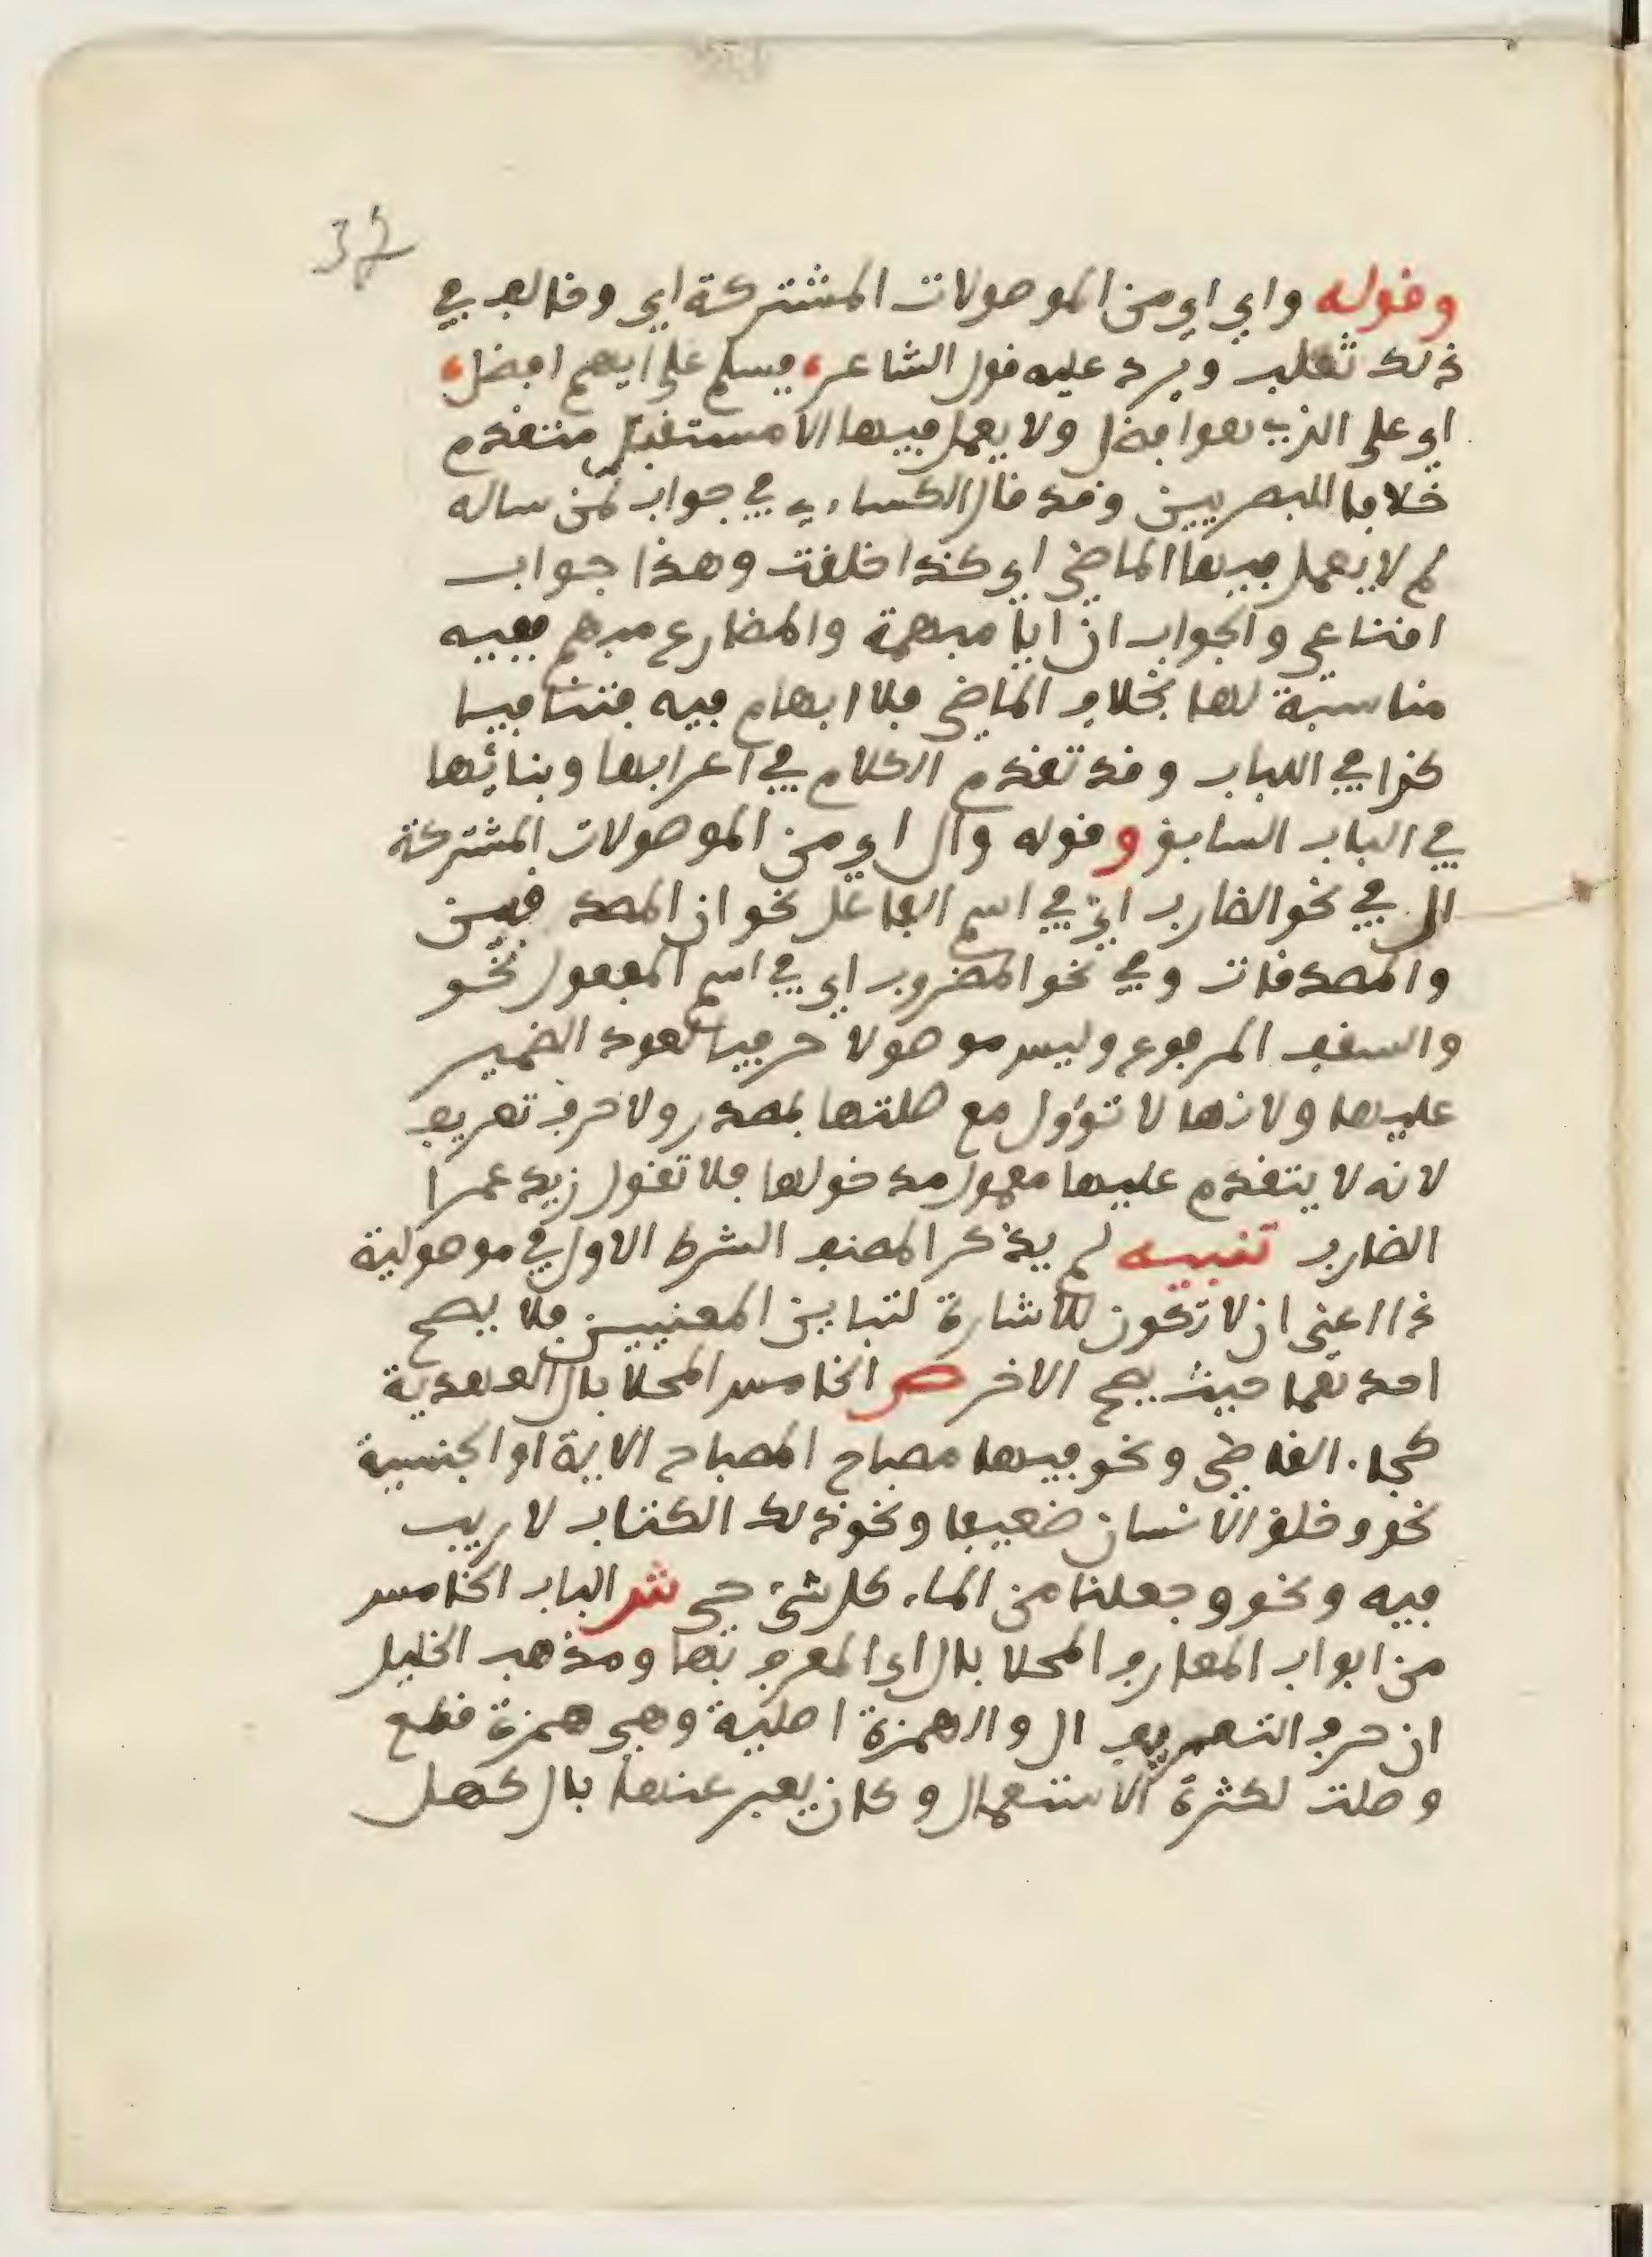 37
وقوله واي اي من الموصولات المشتركة اي وخالف في
ذلك ثعلب ويرد عليه قول الشاعر، فسلم على ايهم افضل،
اي على الذي هو افضل ولا يعمل فيها الا مستقبل متقدم
خلافا للبصريين وقد قال الكساءي في جواب لمن ساله
لم لا يعمل فيها الماضي اي كذا خلقت وهذا جواب
اقناعي والجواب ان ايا مبهمة والمضارع مبهم ففيه
مناسبة لها بخلاف الماضي فلا ابهام فيه فتنافيا
كذا في اللباب وقد تقدم الكلام في اعرابها وبنائها
في الباب السابق وقوله وال اي من الموصولات المشتركة
ال في نحو الضارب اي في اسم الفاعل نحو ان المصدقين
والمصدقات وفي نحو المضروب اي في اسم المفعول نحو
والسقف المرفوع وليس موصولا حرفيا لعود الضمير
عليها ولانها لا تؤول مع صلتها بمصدر ولا حرف تعريف
لانه لا يتقدم عليها معمول مدخولها فلا تقول زيد عمرا
الضارب تنبيه لم يذكر المصنف الشرط الاول في موصولية
ذا اعني ان لا تكون للاشارة لتباين المعنيين فلا يصح
احدهما حيث يصح الاخر ص الخامس المحلا بال العهدية
كجاء القاضي ونحو فيها مصباح المصباح الاية او الجنسية
نحو وخلق الانسان ضعيفا ونحو ذلك الكتاب لا ريب
فيه ونحو وجعلنا من الماء كل شيء حي ش الباب الخامس
من ابواب المعارف المحلا بال اي المعرف بها ومذهب الخليل
ان حرف التعريف ال والهمزة اصلية وهي همزة قطع
وصلت لكثرة الاستعمال وكان يعبر عنها بال كهل